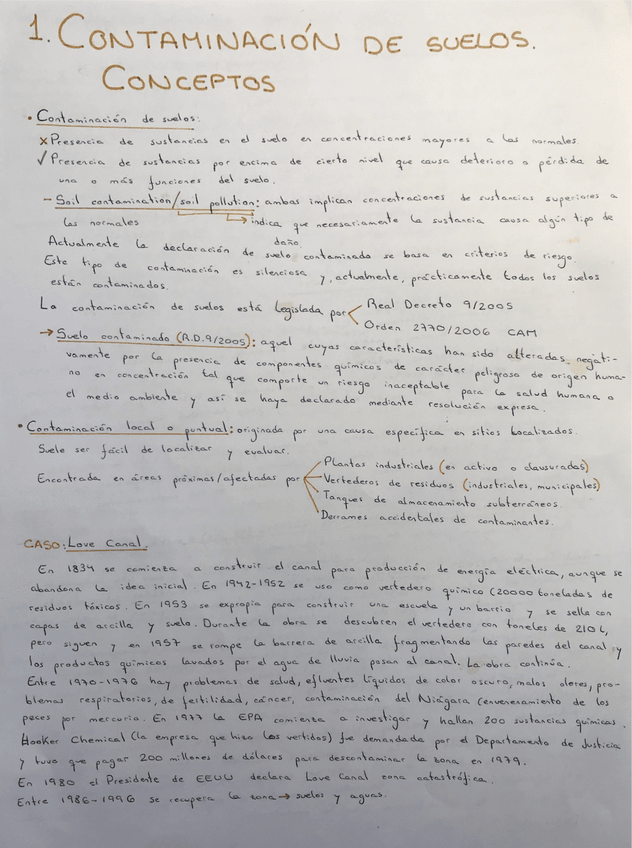 1. CONTAMINACIÓN DE SUELOS.
CONCEPTOS
• Contaminación de suelos:
x Presencia de sustancias en el suelo en concentraciones mayores a las normales.
✓ Presencia de sustancias por encima de cierto nivel que causa deterioro o pérdida de
una o más funciones del suelo.
- Soil contamination/soil pollution: ambas implican concentraciones de sustancias superiores a
las normales → indica que necesariamente la sustancia causa algún tipo de
daño.
Actualmente la declaración de suelo contaminado se basa en criterios de riesgo.
Este tipo de contaminación es silenciosa y, actualmente, prácticamente todos los suelos
están contaminados.
La contaminación de suelos está legislada por < Real Decreto 9/2005
Orden 2770/2006 CAM
→ Suelo contaminado (R.D.9/2005): aquel cuyas características han sido alteradas negati-
vamente por la presencia de componentes químicos de carácter peligroso de origen huma-
no en concentración tal que comporte un riesgo inaceptable para la salud humana o
el medio ambiente y así se haya declarado mediante resolución expresa.
• Contaminación local o puntual: originada por una causa específica en sitios localizados.
Suele ser fácil de localizar y evaluar.
Encontrada en áreas próximas/afectadas por
Plantas industriales (en activo o clausuradas)
Vertederos de residuos (industriales, municipales)
Tanques de almacenamiento subterráneos.
Derrames accidentales de contaminantes.
CASO: Love Canal.
En 1834 se comienza a construir el canal para producción de energía eléctrica, aunque se
abandona la idea inicial. En 1942-1952 se usa como vertedero químico (20000 toneladas de
residuos tóxicos. En 1953 se expropia para construir una escuela y un barrio y se sella con
capas de arcilla y suelo. Durante la obra se descubren el vertedero con toneles de 210 L,
pero siguen y en 1957 se rompe la barrera de arcilla fragmentando las paredes del canal y
los productos químicos lavados por el agua de lluvia pasan al canal. La obra continúa.
Entre 1970-1976 hay problemas de salud, efluentes líquidos de color oscuro, malos olores, pro-
blemas respiratorios, de fertilidad, cáncer, contaminación del Niágara (envenenamiento de los
peces por mercurio. En 1977 la EPA comienza a investigar y hallan 200 sustancias químicas.
Hooker Chemical (la empresa que hizo los vertidos) fue demandada por el Departamento de Justicia
y tuvo que pagar 200 millones de dólares para descontaminar la zona en 1979.
En 1980 el Presidente de EEUU declara Love Canal zona catastrófica.
Entre 1986-1996 se recupera la zona → suelos y aguas.